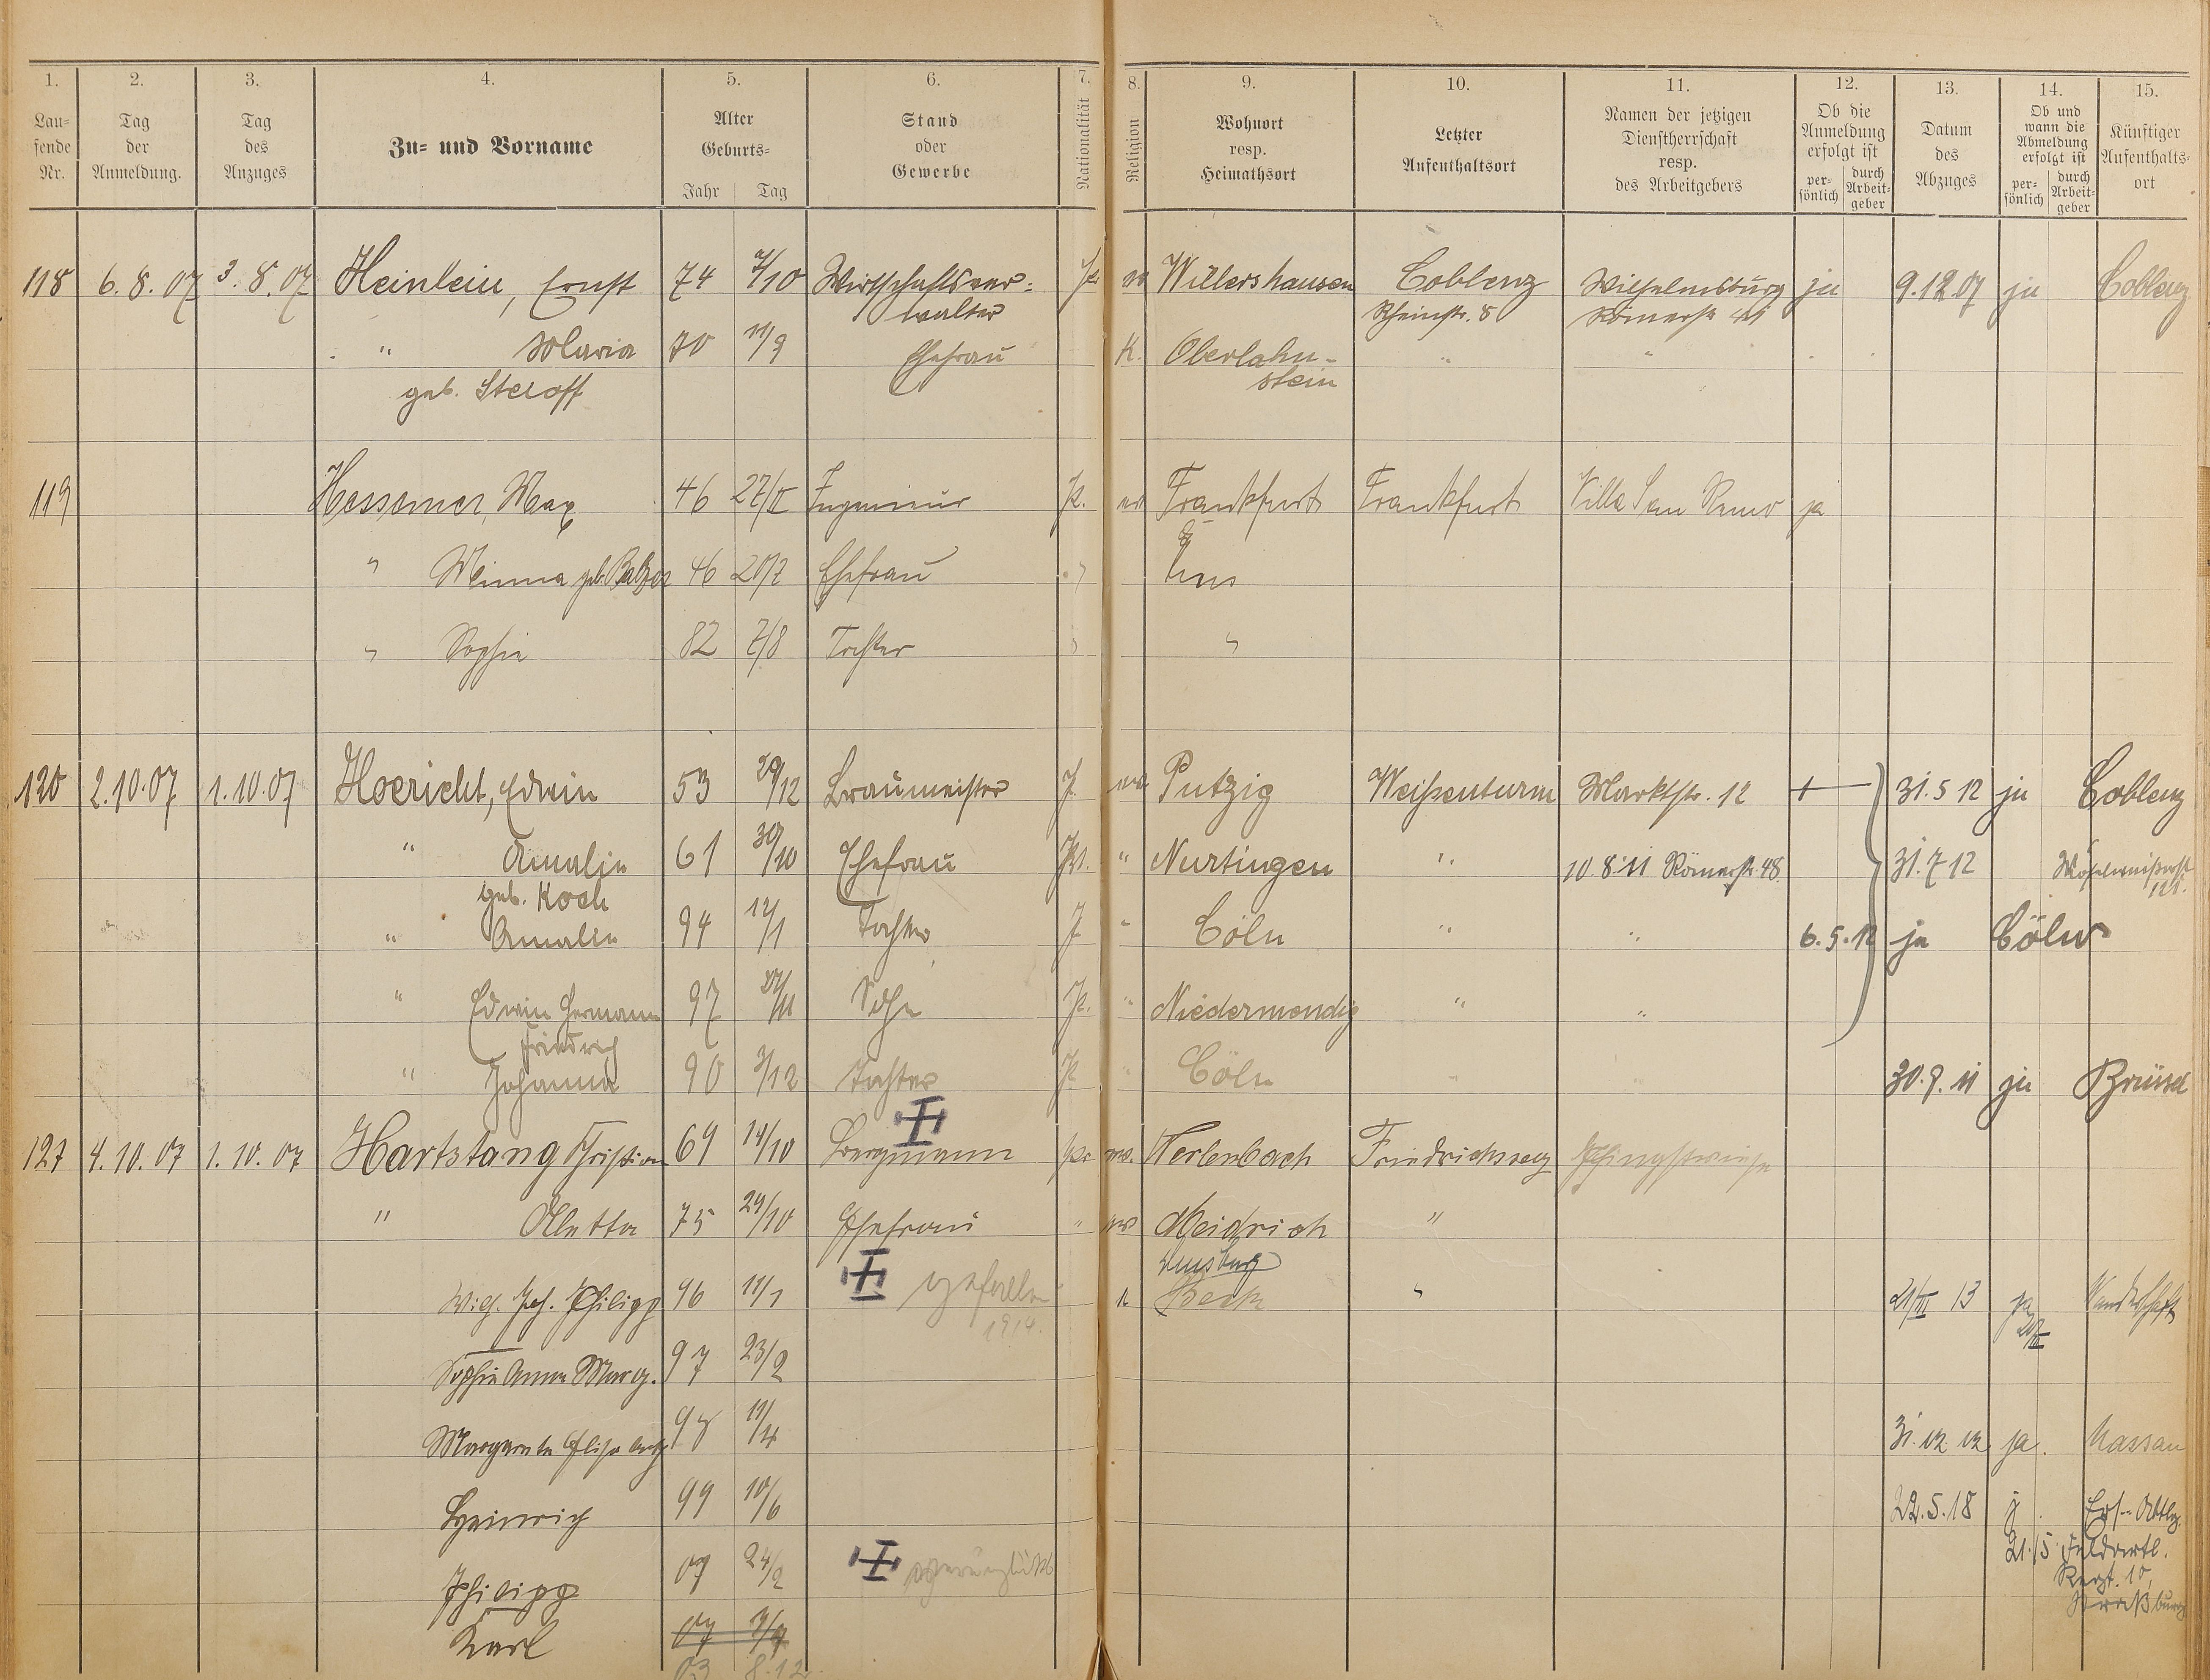 1. 2. 3. 4. 5. 6. 7. 8. 9. 10. 11. 12. 13. 14. 15.
Lau-fende Nr.
Tag der Anmeldung.
Tag des Anzuges
Zu- und Vorname
Alter Geburts- Jahr Tag
Stand oder Gewerbe
Nationalität
Religion
Wohnort resp. Heimathsort
Letzter Aufenthaltsort
Namen der jetzigen Dienstherrschaft resp. des Arbeitgebers
Ob die Anmeldung erfolgt ist per-sönlich durch Arbeit-geber
Datum des Abzuges
Ob und wann die Abmeldung erfolgt ist per-sönlich durch Arbeit-geber
Künftiger Aufenthalts-ort
118 6.8.07 3.8.07 Heinlein, Ernst 74 7/10 Wirtschaftsver= Pr Willershausen Coblenz Wilhelmsburg ja 9.12.07 ja Coblenz
walter Rheinstr. 8 Römerstr 41
" Maria 70 11/9 Ehefrau K. Oberlahn-
stein
geb. Steroff
119 Hessemer, Max 46 27/II Ingenieur Pr. Frankfurt Frankfurt Villa San Remo ja
" Minna geb. Balzer 46 20/7 Ehefrau Ems
" Sophie 82 7/8 Tochter "
120 2.10.07 1.10.07 Hoericht, Edwin 53 29/12 Braumeister P. Putzig Weißenturm Marktstr. 12 + 31.5 12 ja Coblenz
" Amalie 61 30/10 Ehefrau Pr. " Nurtingen " 10.8.11 Römerstr. 48. 31.7 12
121.
geb. Koch
" Amalie 94 12/1 Tochter P " Cöln " " 6.5.12 ja Cöln
" Edwin Hermann 97 27/11 Sohn Pr. " Niedermendig " "
Friedrich
" Johanna 90 3/12 Tochter P " Cöln " " 30.9.11 ja Brüssel
127 4.10.07 1.10.07 Hartstang Christian 69 14/10 Bergmann pr ev. Nerlenbach Friedrichssegen Pfingstwiese
" Aletta 75 24/10 Ehefrau " ev Meidrich "
Duisburg
Wilh. Joh. Philipp 96 11/1 gefallen Beek " 21/III 13 ja Wanderschaft
1914.
Sophie Anna Marg. 97 23/2
Margareta Elisabeth 98 11/4 31.12 12 ja. Nassau
Heinrich 99 10/6 22.5.18 j. Ers.-Abtlg.
21./5 Feldartl.
Regt. 10,
Straßburg
Philipp 07 24/2 verunglückt
Karl 07 7/9
03 8.12.